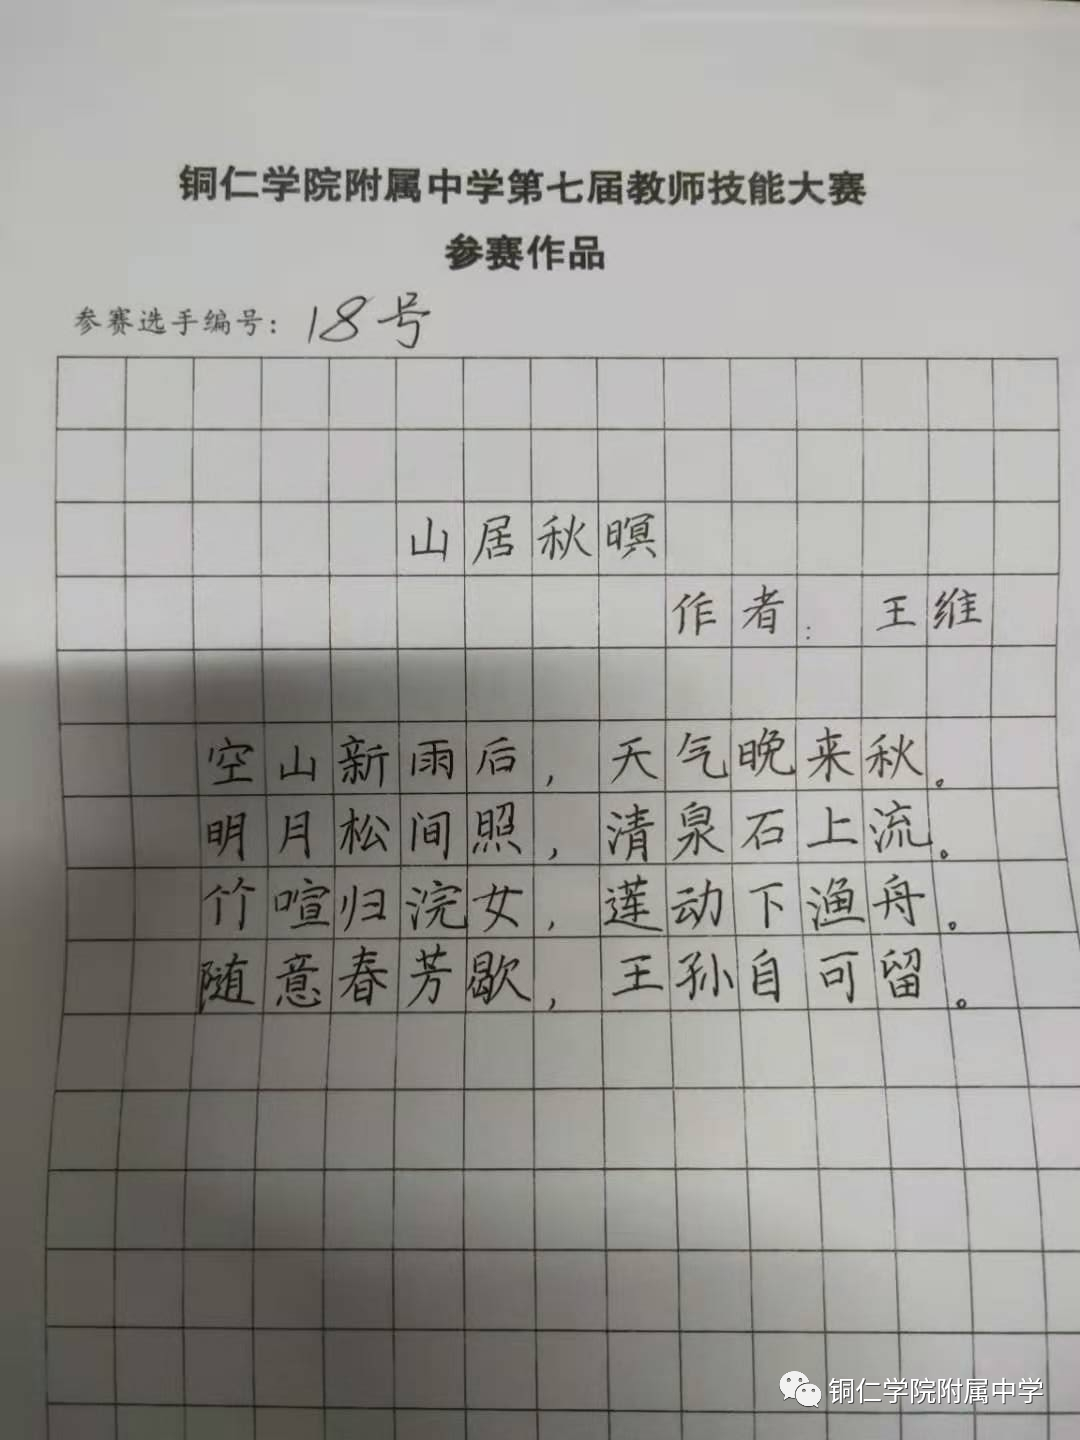 铜仁学院附属中学第七届教师技能大赛
参赛作品
参赛选手编号：18号
山居秋暝
作者：王维
空山新雨后，天气晚来秋。
明月松间照，清泉石上流。
竹喧归浣女，莲动下渔舟。
随意春芳歇，王孙自可留。
铜仁学院附属中学